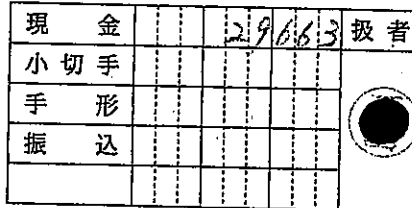 現金 29663 扱者
小切手
手形
振込